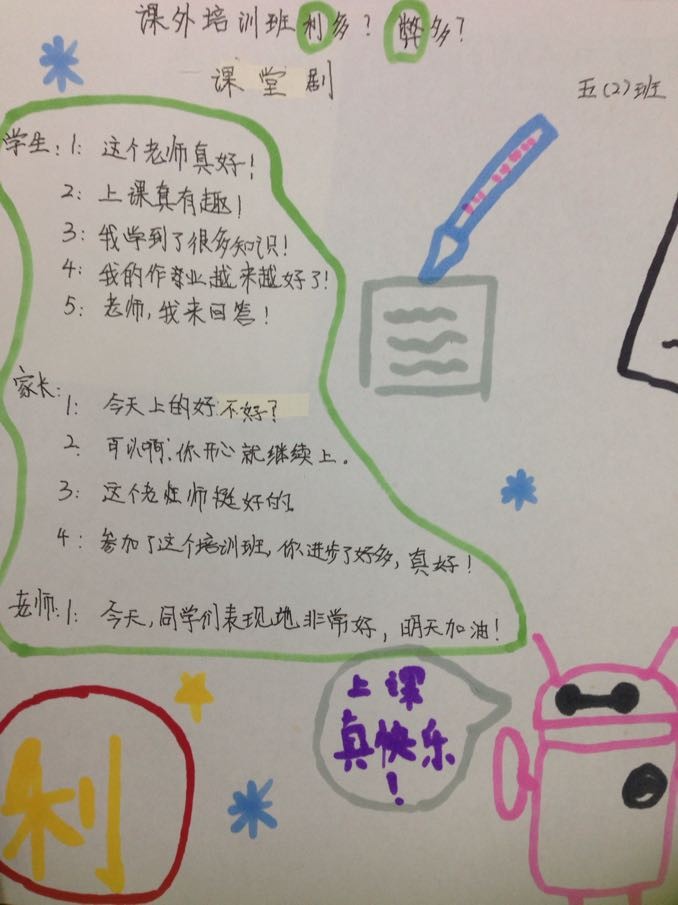 课外培训班利多？弊多？
课堂剧
五(2)班
学生：1：这个老师真好！
2：上课真有趣！
3：我学到了很多知识！
4：我的作业越来越好了！
5：老师，我来回答！
家长：
1：今天上的好不好？
2：可以啊，你开心就继续上。
3：这个老师挺好的。
4：参加了这个培训班，你进步了好多，真好！
老师：1：今天，同学们表现地非常好，明天加油！
上课
真快乐
！
利